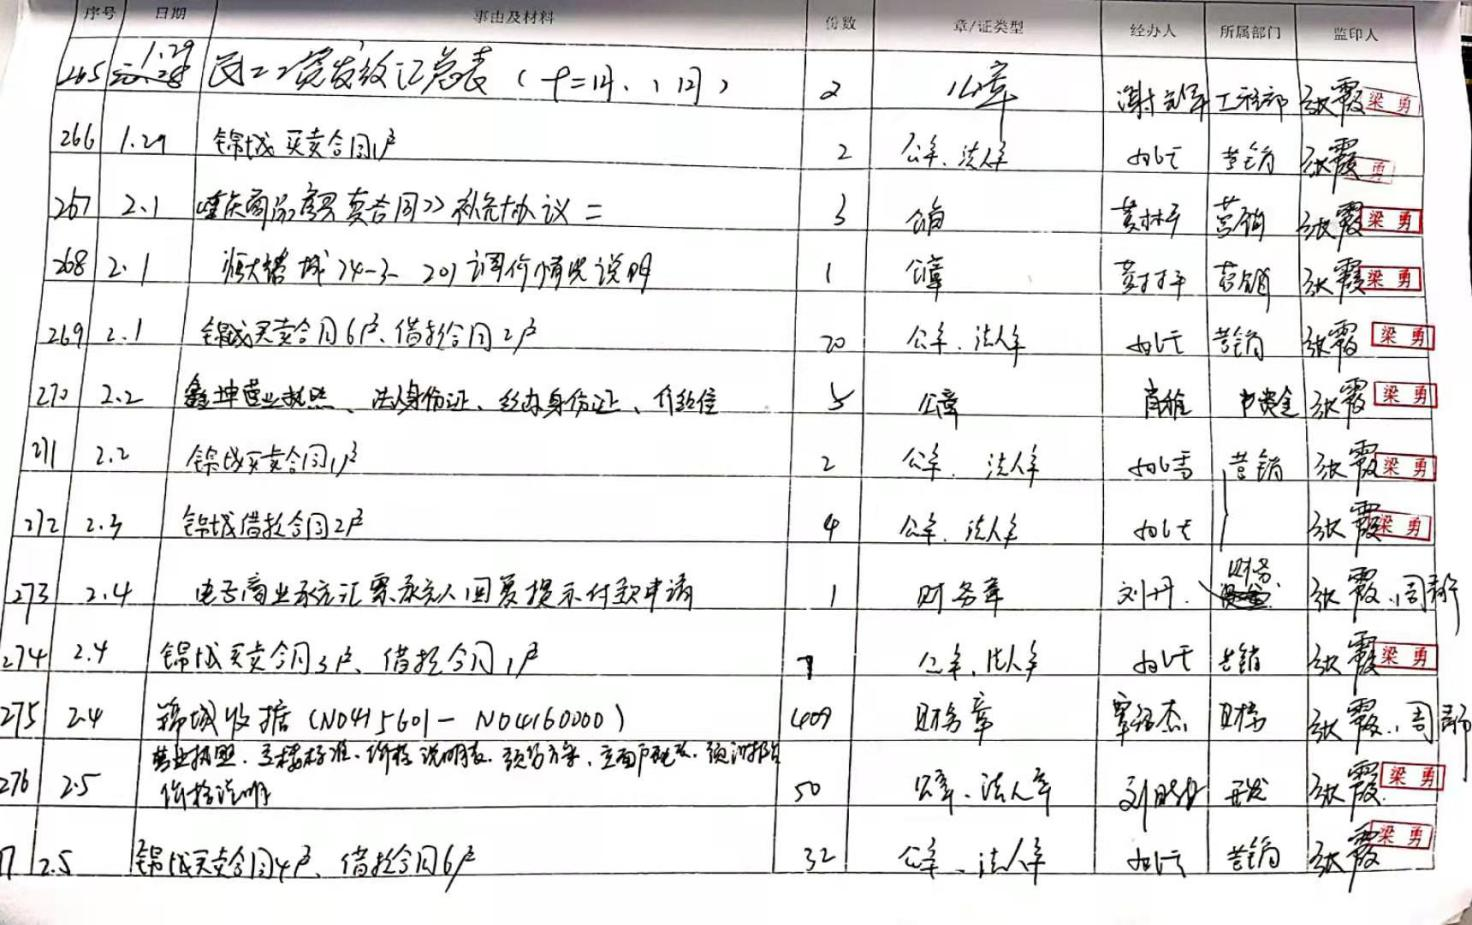 序号 日期 事由及材料 份数 章/证类型 经办人 所属部门 监印人
265 1.29 民工工资发放汇总表（十二月、1月） 2 公章 谢 工程部 张霞 梁勇
266 1.29 锦城买卖合同1户 2 公章、法人章 营销 张霞 勇
267 2.1 重庆商品房买卖合同>>补充协议二 3 黄林平 营销 张霞 梁勇
268 2.1 城24-3-201调价情况说明 1 公章 黄林平 营销 张霞 梁勇
269 2.1 锦城买卖合同6户、借款合同2户 20 公章、法人章 营销 张霞 梁勇
270 2.2 鑫坤营业执照、法人身份证、经办身份证、介绍信 5 公章 肖 张霞 梁勇
271 2.2 锦城买卖合同1户 2 公章、法人章 营销 张霞 梁勇
272 2.3 锦城借款合同2户 4 公章、法人章 张霞 梁勇
273 2.4 电子商业承兑汇票承兑人回复提示付款申请 1 财务章 刘丹 财务 张霞、周
274 2.4 锦城买卖合同3户、借款合同1户 7 公章、法人章 营销 张霞 梁勇
275 2.4 锦城收据（NO415601-NO4160000） 409 财务章 覃 杰 财务 张霞、周
营业执照、 标准、价格说明表、预售方案、立面
276 2.5 价格说明 50 公章、法人章 刘 开发 张霞 梁勇
7 2.5 锦城买卖合同4户、借款合同6户 32 公章、法人章 营销 张霞 梁勇